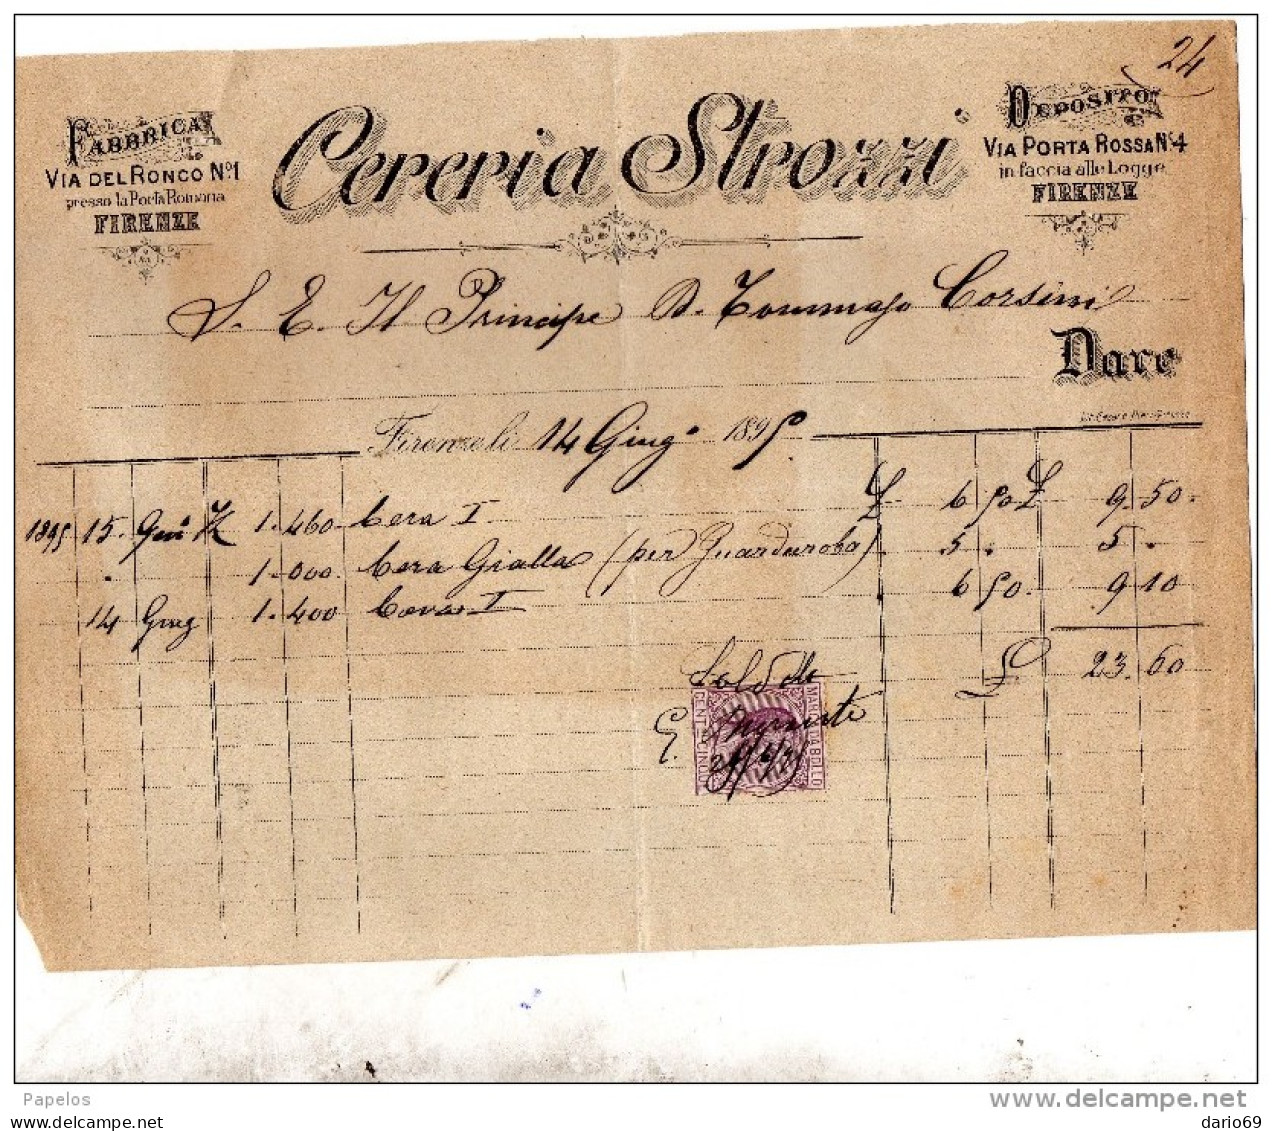 24
FABBRICA
VIA DEL RONCO No1
presso la Porta Romana
FIRENZE
Cereria Strozzi
DEPOSITO
VIA PORTA ROSSA No4
in faccia alle Logge
FIRENZE
S. E. Il Principe D. Tommaso Corsini
Dare
Firenze li 14 Giugo 1895
1895 15. K 1. 460 Cera I £ 6 50 £ 9. 50
" 1. 000. Cera Gialla (per Guardaroba) " 5 " 5 "
14 Giug 1. 400 Cera I " 6 50. 9 10
£ 23. 60
Saldato
E.
MARCA DA BOLLO
CENT. CINQUE
Papelos
delcampe.net
dario69